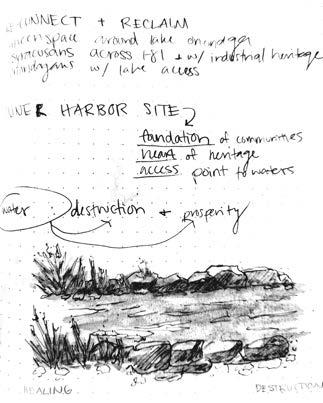 CONNECT + RECLAIM
greenspace around lake onondaga
syracusans across I-81 + w/ industrial heritage
onondagans w/ lake access
INNER HARBOR SITE
foundation of communities
heart of heritage
access point to waters
water : destruction + prosperity
HEALING
DESTRUCTION